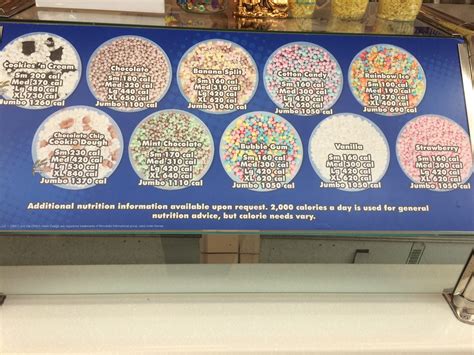 Cookies 'n Cream
Sm 200 cal
Med 370 cal
Lg 480 cal
XL 730 cal
Jumbo 1260 cal
Chocolate
Sm 180 cal
Med 320 cal
Lg 420 cal
XL 640 cal
Jumbo 1100 cal
Banana Split
Sm 160 cal
Med 310 cal
Lg 420 cal
XL 620 cal
Jumbo 1040 cal
Cotton Candy
Sm 160 cal
Med 300 cal
Lg 420 cal
XL 620 cal
Jumbo 1050 cal
Rainbow Ice
Sm 100 cal
Med 200 cal
Lg 270 cal
XL 400 cal
Jumbo 690 cal
Chocolate Chip
Cookie Dough
Sm 230 cal
Med 420 cal
Lg 530 cal
XL 840 cal
Jumbo 1370 cal
Mint Chocolate
Sm 170 cal
Med 310 cal
Lg 420 cal
XL 640 cal
Jumbo 1110 cal
Bubble Gum
Sm 160 cal
Med 310 cal
Lg 420 cal
XL 620 cal
Jumbo 1050 cal
Vanilla
Sm 160 cal
Med 310 cal
Lg 420 cal
XL 620 cal
Jumbo 1050 cal
Strawberry
Sm 160 cal
Med 300 cal
Lg 420 cal
XL 620 cal
Jumbo 1050 cal
Additional nutrition information available upon request. 2,000 calories a day is used for general
nutrition advice, but calorie needs vary.